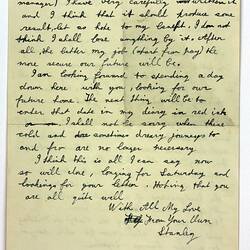 manager) I have very carefully written it
and I think that it should produce some
result, let us hope to my benefit. I do not
think I shall lose anything by it. After
all the better my job (apart from pay) the
more secure our future will be.
I am looking forward to spending a day
down here with you, looking for our
future home. The next thing will be to
enter that date in my diary in red ink
I shall not be sorry when these
cold and sometimes dreary journeys to
and fro are no longer necessary.
I think this is all I can say now
so will close, longing for Saturday and
looking for your letter. Hoping that you
are all quite well
With All My Love
From Your Own
Stanley